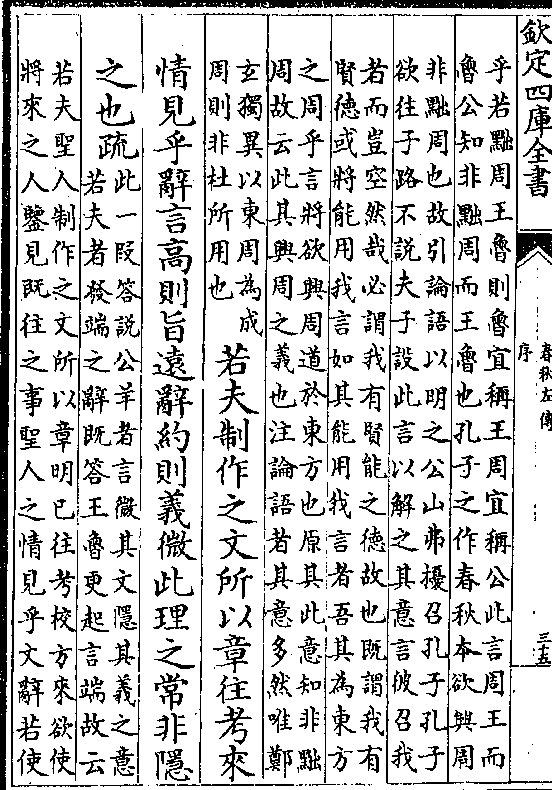 欽定四庫全書
春秋左傳
序
三十五
乎若黜周王魯則魯宜稱王周宜稱公此言周王而
魯公知非黜周而王魯也孔子之作春秋本欲興周
非黜周也故引論語以明之公山弗擾召孔子孔子
欲往子路不說夫子設此言以解之其意言彼召我
若而豈空然哉必謂我有賢能之德故也既謂我有
賢德或將能用我言如其能用我言者吾其為東方
之周乎言將欲興周道於東方也原其此意知非黜
周故云此其興周之義也注論語者其意多然唯鄭
玄獨異以東周為成
周則非杜所用也
若夫制作之文所以章往考來
情見乎辭言高則旨遠辭約則義微此理之常非隱
之也疏
此一段答說公羊者言微其文隱其義之意
若夫者發端之辭既答王魯更起言端故云
若夫聖人制作之文所以章明已往考校方來欲使
將來之人鑒見既往之事聖人之情見乎文辭若使